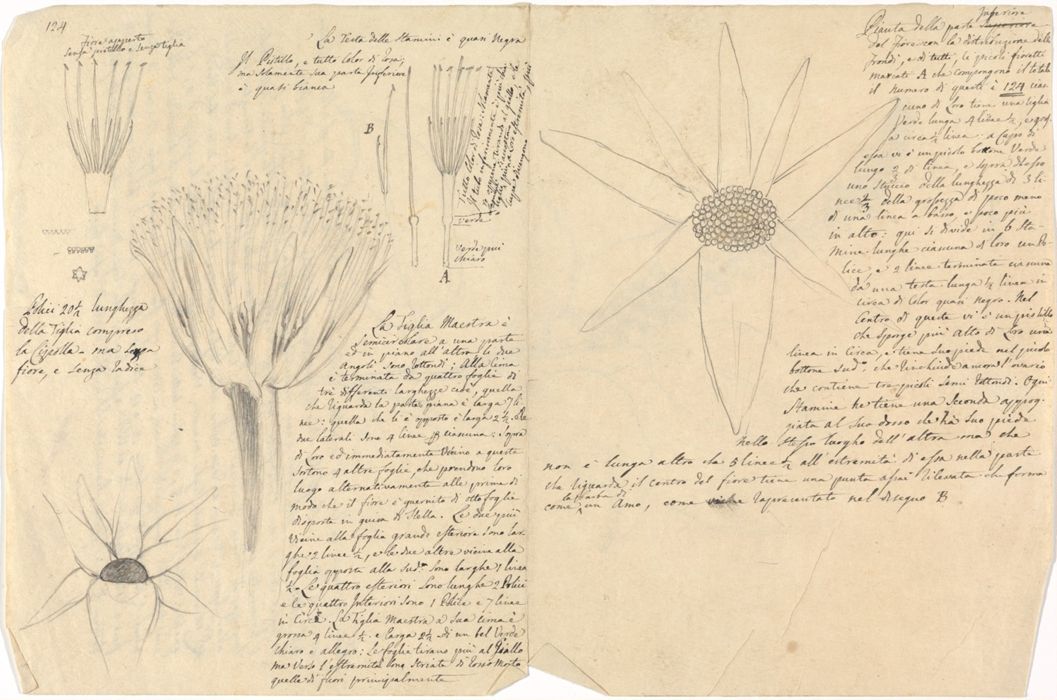 124
Fiore aperto
senza pistillo e senza tiglia
La Testa delle Stamini è quasi Negra
Il Pistillo, e tutto Color di Rosa,
ma solamente sua parte Inferiore
è quasi bianca
B
tutto Color di Rosa: Stamenti
verde
verde più
chiaro
A
Polici 20 1/2 lunghezza
della Tiglia compreso
la Cipolla - ma senza
fiore, e senza Radica
La Tiglia Maestra è
Semicircolare a una parte
ed in piano all'altra le due
angoli sono Rottondi; Alla Cima
è terminata da quattro foglie di
tre differenti larghezze cioè, quella
che riguarda la parte piana è larga 7 li
nee: quella che li è opposta è larga 2 1/2. Le
due laterali sono 4 linee B ciascuna: sopra
di loro ed immediatamente Vicino a queste
sortono 4 altre foglie che prendono loro
luogo alternativamente alle prime di
modo che il fiore è guernito di otto foglie
disposte in guisa di Stella. Le due più
Vicine alla foglia grande esteriore sono lar
ghe 2 linee 1/2, e le due altre vicine alla
foglia opposta alla sud.a sono larghe 1 linea
1/2. Le quattro esteriori sono lunghe 2 Polici
e le quattro Interiori sono 1 Police e 7 linee
in Circa. La Tiglia Maestra a sua Cima è
grossa 4 linee 1/2 e larga 8 1/2 di un bel Verde
Chiaro e allegro: Le foglie tirano più al Giallo
ma verso l'estremità sono striate di Rosso Morto
quelle di fuori principalmente
Inferiore
Pianta della parte Superiore
del fiore con la distribuzione delle
frondi, e di tutti, li piccoli fioretti
marcati A che compongono il totale
il numero di questi è 124 cias
cuno di Loro tiene una tiglia
Verde lunga 4 linee 1/2, e gros
sa circa 1/2 linea - a Capo di
essa vi è un piccolo bottone Verde
lungo 2 di linea, e sopra d'esso
uno stuccio della lunghezza di 3 li
nee 1/3 della grossezza di poco meno
di una linea a basso, e poco più
in alto: qui si divide in 6 Sta
mine lunghe ciascuna di loro un Po
lice, e 2 linee terminate ciascuna
da una testa lunga 1/2 linea in
circa di Color quasi Negro. Nel
Centro di queste vi è un pistillo
che sporge più alto di Loro una
linea in Circa, e tiene suo piede nel piccolo
bottone sud.o, che rinchiude ancora l'ovario
che contiene tre piccoli Semi Rottondi. Ogni
Stamine ne tiene una Seconda appog
giata al suo dosso che ha suo piede
nello stesso luogho dell'altra ma che
non è lunga altro che 5 linee 1/2 all'estremità di essa nella parte
che riguarda il centro del fiore tiene una punta assai rilevata che forma
la barba di
come un Amo, come viene rapresentato nel disegno B